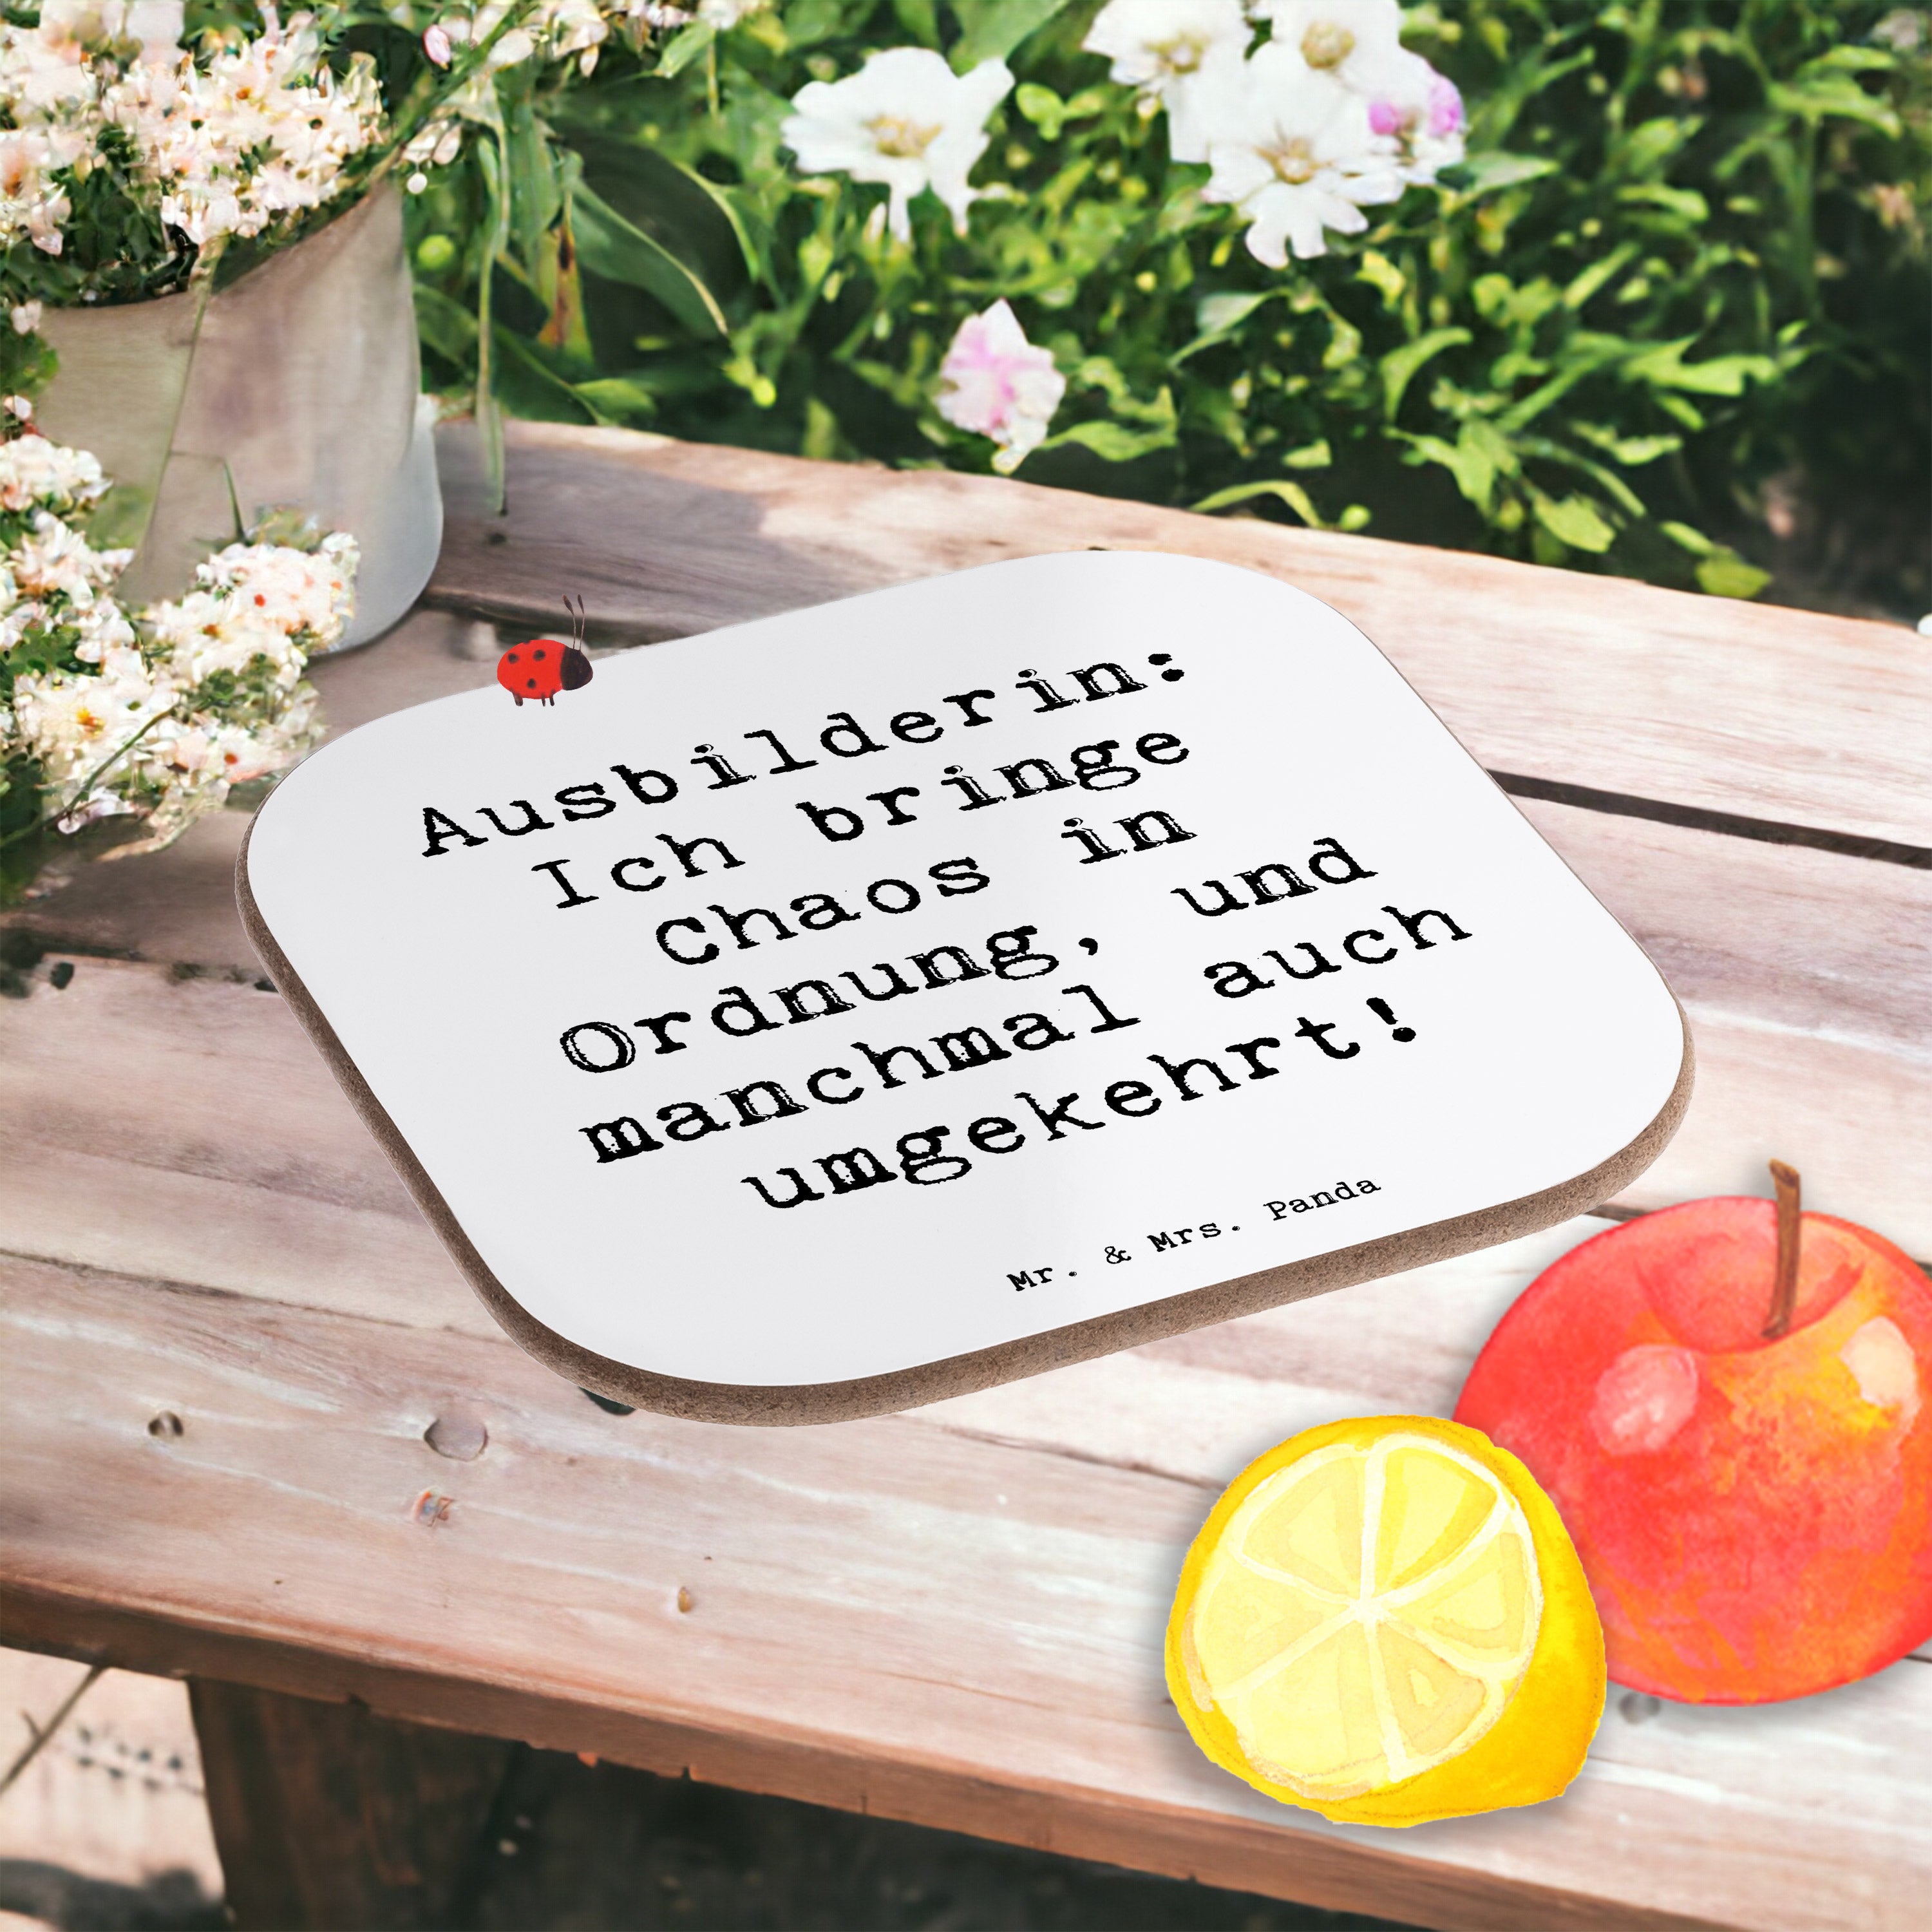 Ausbilderin:
Ich bringe
Chaos in
Ordnung, und
manchmal auch
umgekehrt!
Mr. & Mrs. Panda